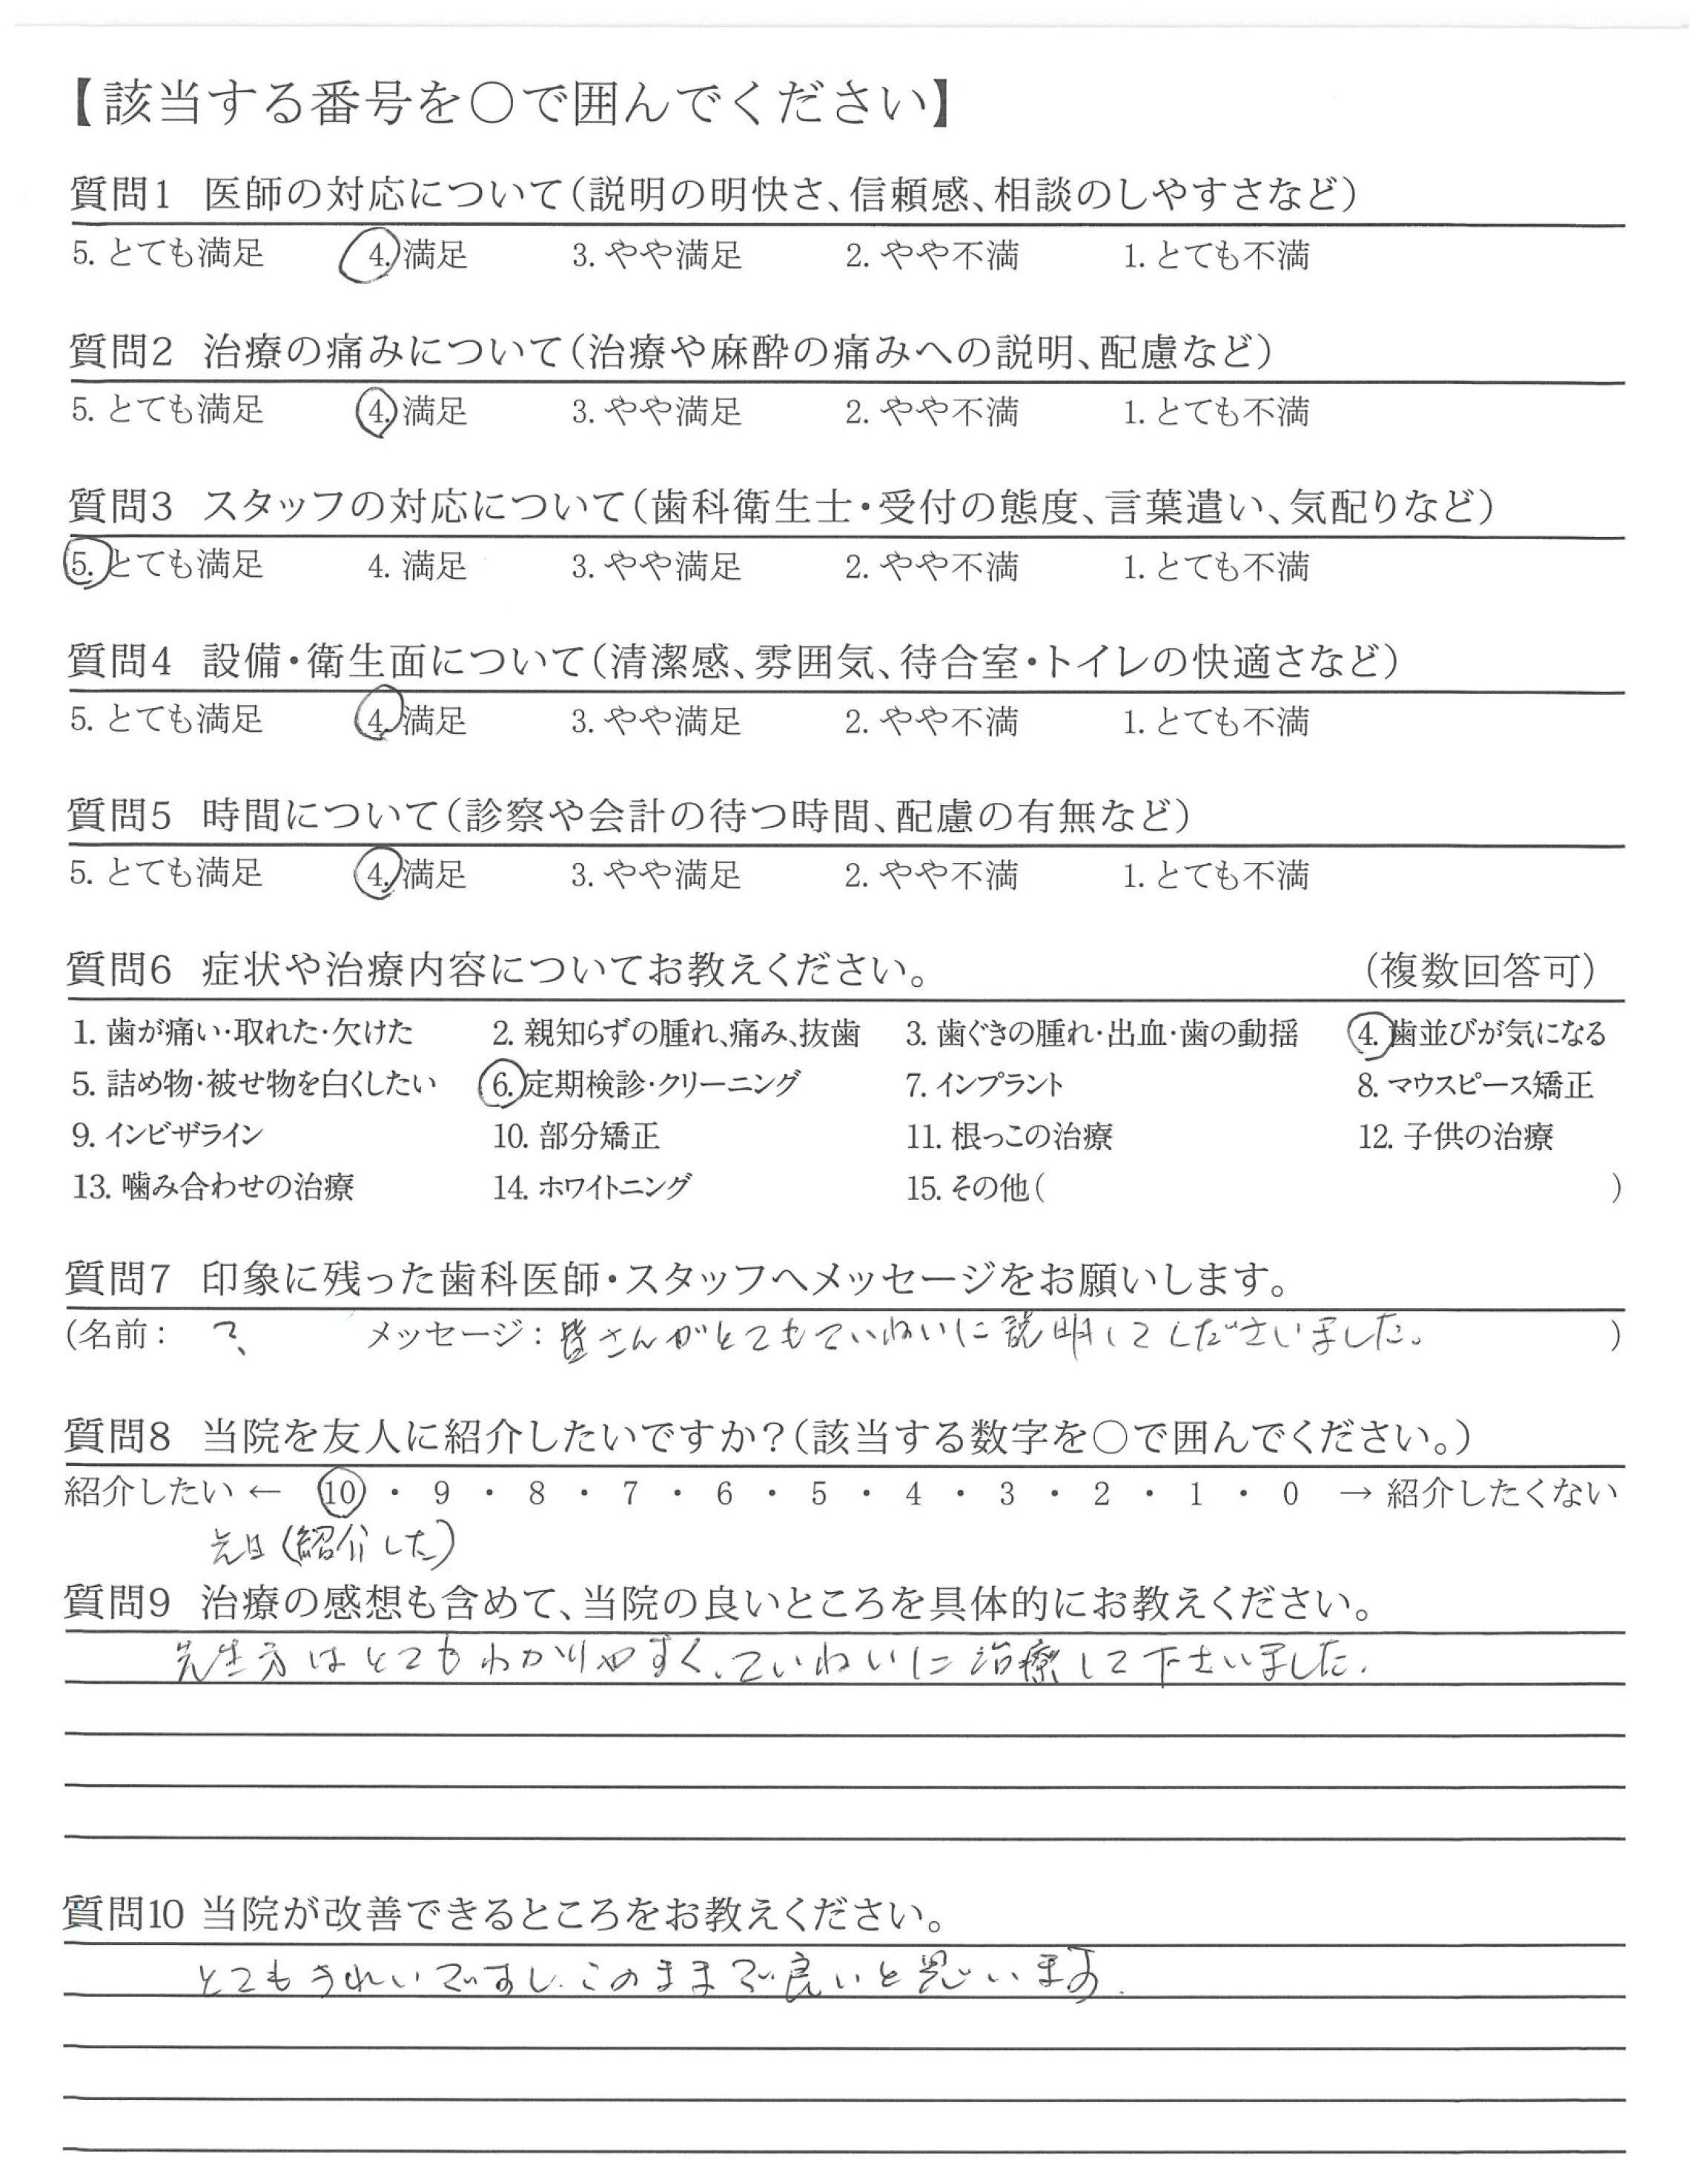 【該当する番号を○で囲んでください】
質問1 医師の対応について（説明の明快さ、信頼感、相談のしやすさなど）
5. とても満足 4. 満足 3. やや満足 2. やや不満 1. とても不満
質問2 治療の痛みについて（治療や麻酔の痛みへの説明、配慮など）
5. とても満足 4. 満足 3. やや満足 2. やや不満 1. とても不満
質問3 スタッフの対応について（歯科衛生士・受付の態度、言葉遣い、気配りなど）
5. とても満足 4. 満足 3. やや満足 2. やや不満 1. とても不満
質問4 設備・衛生面について（清潔感、雰囲気、待合室・トイレの快適さなど）
5. とても満足 4. 満足 3. やや満足 2. やや不満 1. とても不満
質問5 時間について（診察や会計の待つ時間、配慮の有無など）
5. とても満足 4. 満足 3. やや満足 2. やや不満 1. とても不満
質問6 症状や治療内容についてお教えください。 （複数回答可）
1. 歯が痛い・取れた・欠けた 2. 親知らずの腫れ、痛み、抜歯 3. 歯ぐきの腫れ・出血・歯の動揺 4. 歯並びが気になる
5. 詰め物・被せ物を白くしたい 6. 定期検診・クリーニング 7. インプラント 8. マウスピース矯正
9. インビザライン 10. 部分矯正 11. 根っこの治療 12. 子供の治療
13. 噛み合わせの治療 14. ホワイトニング 15. その他（ ）
質問7 印象に残った歯科医師・スタッフへメッセージをお願いします。
（名前： ？、 メッセージ：皆さんがとてもていねいに説明してくださいました。 ）
質問8 当院を友人に紹介したいですか？（該当する数字を○で囲んでください。）
紹介したい ← 10 ・ 9 ・ 8 ・ 7 ・ 6 ・ 5 ・ 4 ・ 3 ・ 2 ・ 1 ・ 0 → 紹介したくない
先日（紹介した）
質問9 治療の感想も含めて、当院の良いところを具体的にお教えください。
先生方はとてもわかりやすく、ていねいに治療して下さいました.
質問10 当院が改善できるところをお教えください。
とてもきれいですし、このままで良いと思います.